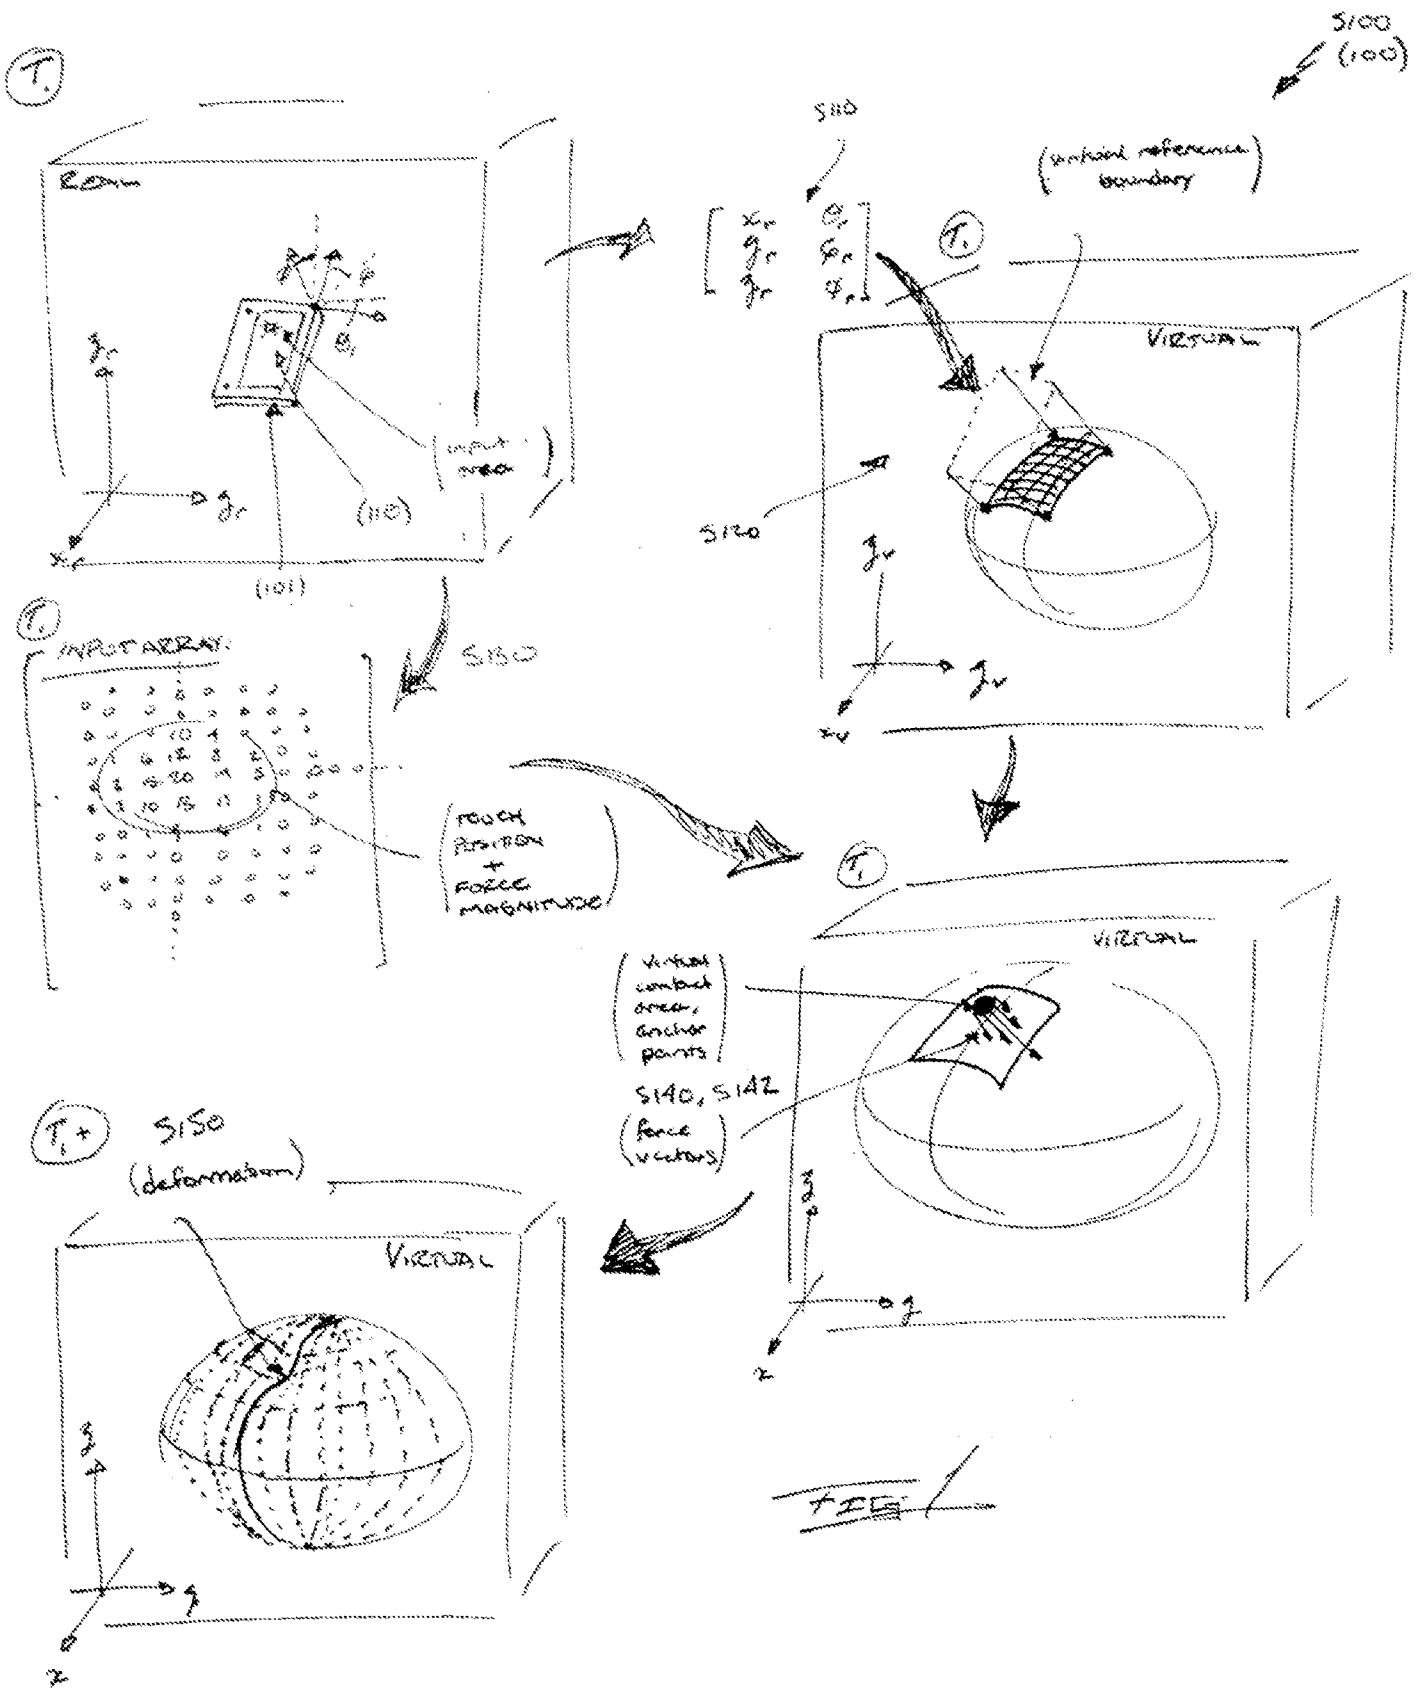 S100
(100)
T₁
REAL
(input
area)
(110)
(101)
zᵣ
xᵣ
S110
xᵣ θᵣ
(virtual reference
boundary)
T₁
VIRTUAL
S120
T₁
INPUT ARRAY
S130
10 4
6 12 8 2
20
(TOUCH
POSITION
+
FORCE
MAGNITUDE)
T₁
VIRTUAL
(virtual
contact
area,
anchor
points)
S140, S142
(force
vectors)
z
y
x
T₁+
S150
(deformation)
VIRTUAL
z
y
x
FIG 1